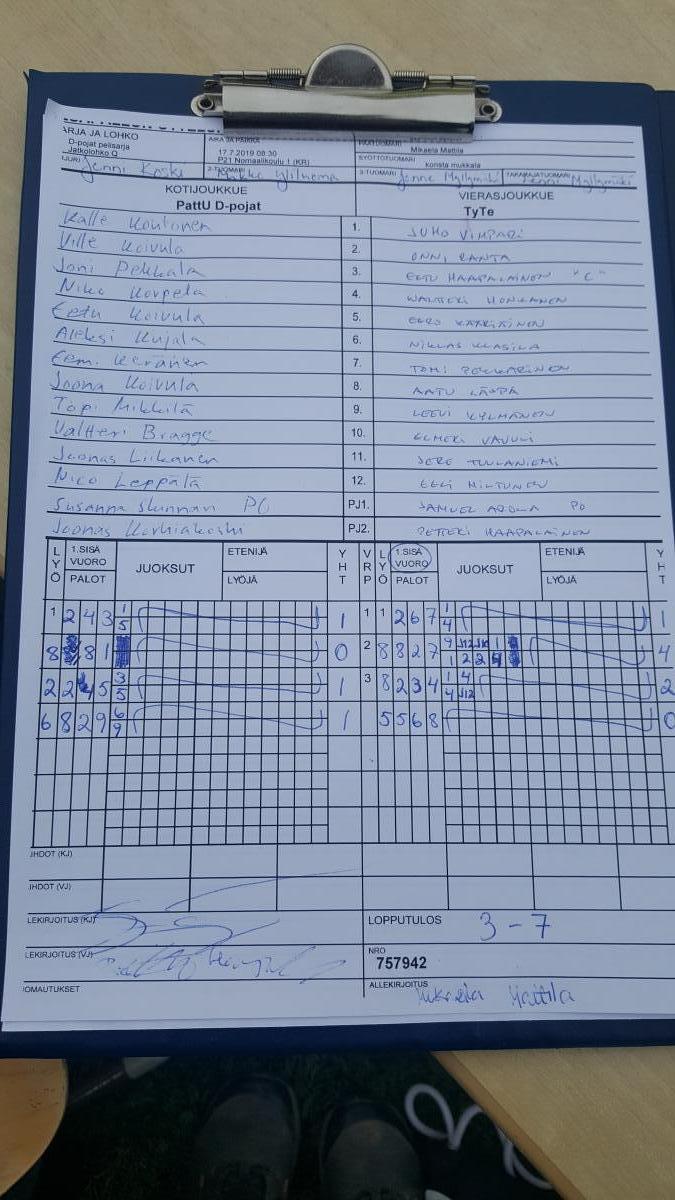 ARJA JA LOHKO
D-pojat pelisarja
Jatkolohko O
AIKA JA PAIKKA
17.7.2019 08:30
P21 Normaalikoulu 1 (KR)
Mikaela Mattila
SYÖTTÖTUOMARI
konsta mukkala
2-TUOMARI
3-TUOMARI
TAKARAJATUOMARI
Jenni Koski
Jenni Myllymäki
KOTIJOUKKUE
PattU D-pojat
VIERASJOUKKUE
TyTe
Kalle Koutonen 1. JUHO VIMPARI
Ville Koivula 2. ONNI RANTA
Joni Pekkala 3. EETU HAAPALAINEN "C"
Niko Korpela 4. WALTTERI HONKANEN
Eetu Koivula 5. EERO
Aleksi Kujala 6. NIKLAS KLASILA
Eemi Keränen 7. TOMI PEKKARINEN
Joona Koivula 8. AATU
Topi Mikkilä 9. LEEVI KYLMÄNEN
Valtteri Bragge 10. ELMERI
Joonas Liikanen 11. JERE TUULANIEMI
Nico Leppälä 12. EELI MILTUNEN
Susanna PJ1. SAMUEL PO
Joonas Korhiakoski PJ2. PETTERI HAAPALAINEN
LYÖ 1.SISÄ VUORO PALOT JUOKSUT ETENIJÄ LYÖJÄ YHT VRP LYÖ 1.SISÄ VUORO PALOT JUOKSUT ETENIJÄ LYÖJÄ YHT
1 2 4 3 1 5 1 1 1 2 6 7 1 4 1
8 8 1 0 2 8 8 2 7 4
2 2 4 5 3 5 1 3 8 2 3 4 1 4 4 J12 2
6 8 2 9 6 9 1 5 5 6 8 0
JHDOT (KJ)
JHDOT (VJ)
LEKIRJOITUS (KJ)
LOPPUTULOS 3-7
LEKIRJOITUS (VJ)
NRO
757942
OMAUTUKSET
ALLEKIRJOITUS Mikaela Mattila